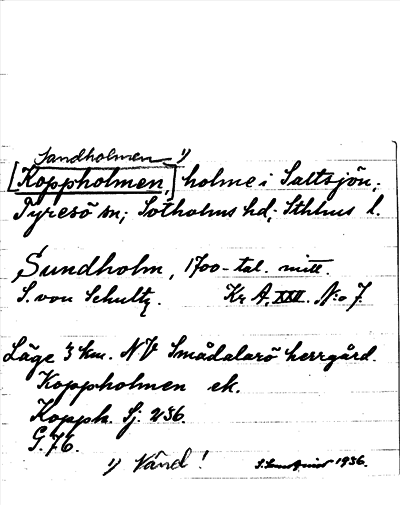 Sandholmen 1)
[Koppholmen,] holme i Saltsjön,
Tyresö sn; Sotholms hd; Sthlms l.
Sundholm, 1700-tal. mitt.
S. von Schultz. Kr. A. XXII. No 7.
Läge 3 km. NV Smådalarö herrgård.
Koppholmen ek.
Kopph. Sj. 236.
G. 76.
1) Vänd! 1936.